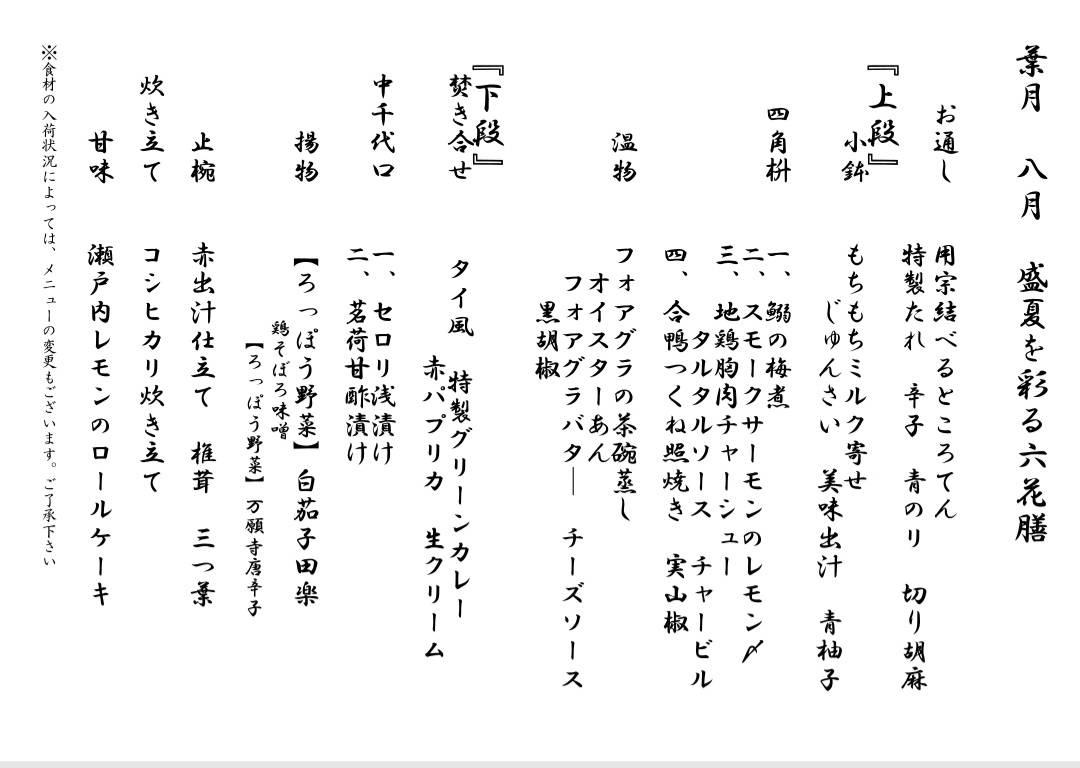 葉月　八月　盛夏を彩る六花膳
お通し　用宗結べるところてん
特製たれ　辛子　青のり　切り胡麻
『上段』
小鉢　もちもちミルク寄せ
じゅんさい　美味出汁　青柚子
四角枡　一、鰯の梅煮
二、スモークサーモンのレモン〆
三、地鶏胸肉チャーシュー
タルタルソース　チャービル
四、合鴨つくね照焼き　実山椒
温物　フォアグラの茶碗蒸し
オイスターあん
フォアグラバター　チーズソース
黒胡椒
『下段』
焚き合せ　タイ風　特製グリーンカレー
赤パプリカ　生クリーム
中千代口　一、セロリ浅漬け
二、茗荷甘酢漬け
揚物　【ろっぽう野菜】白茄子田楽
鶏そぼろ味噌
【ろっぽう野菜】万願寺唐辛子
止椀　赤出汁仕立て　椎茸　三つ葉
炊き立て　コシヒカリ炊き立て
甘味　瀬戸内レモンのロールケーキ
※食材の入荷状況によっては、メニューの変更もございます。ご了承下さい